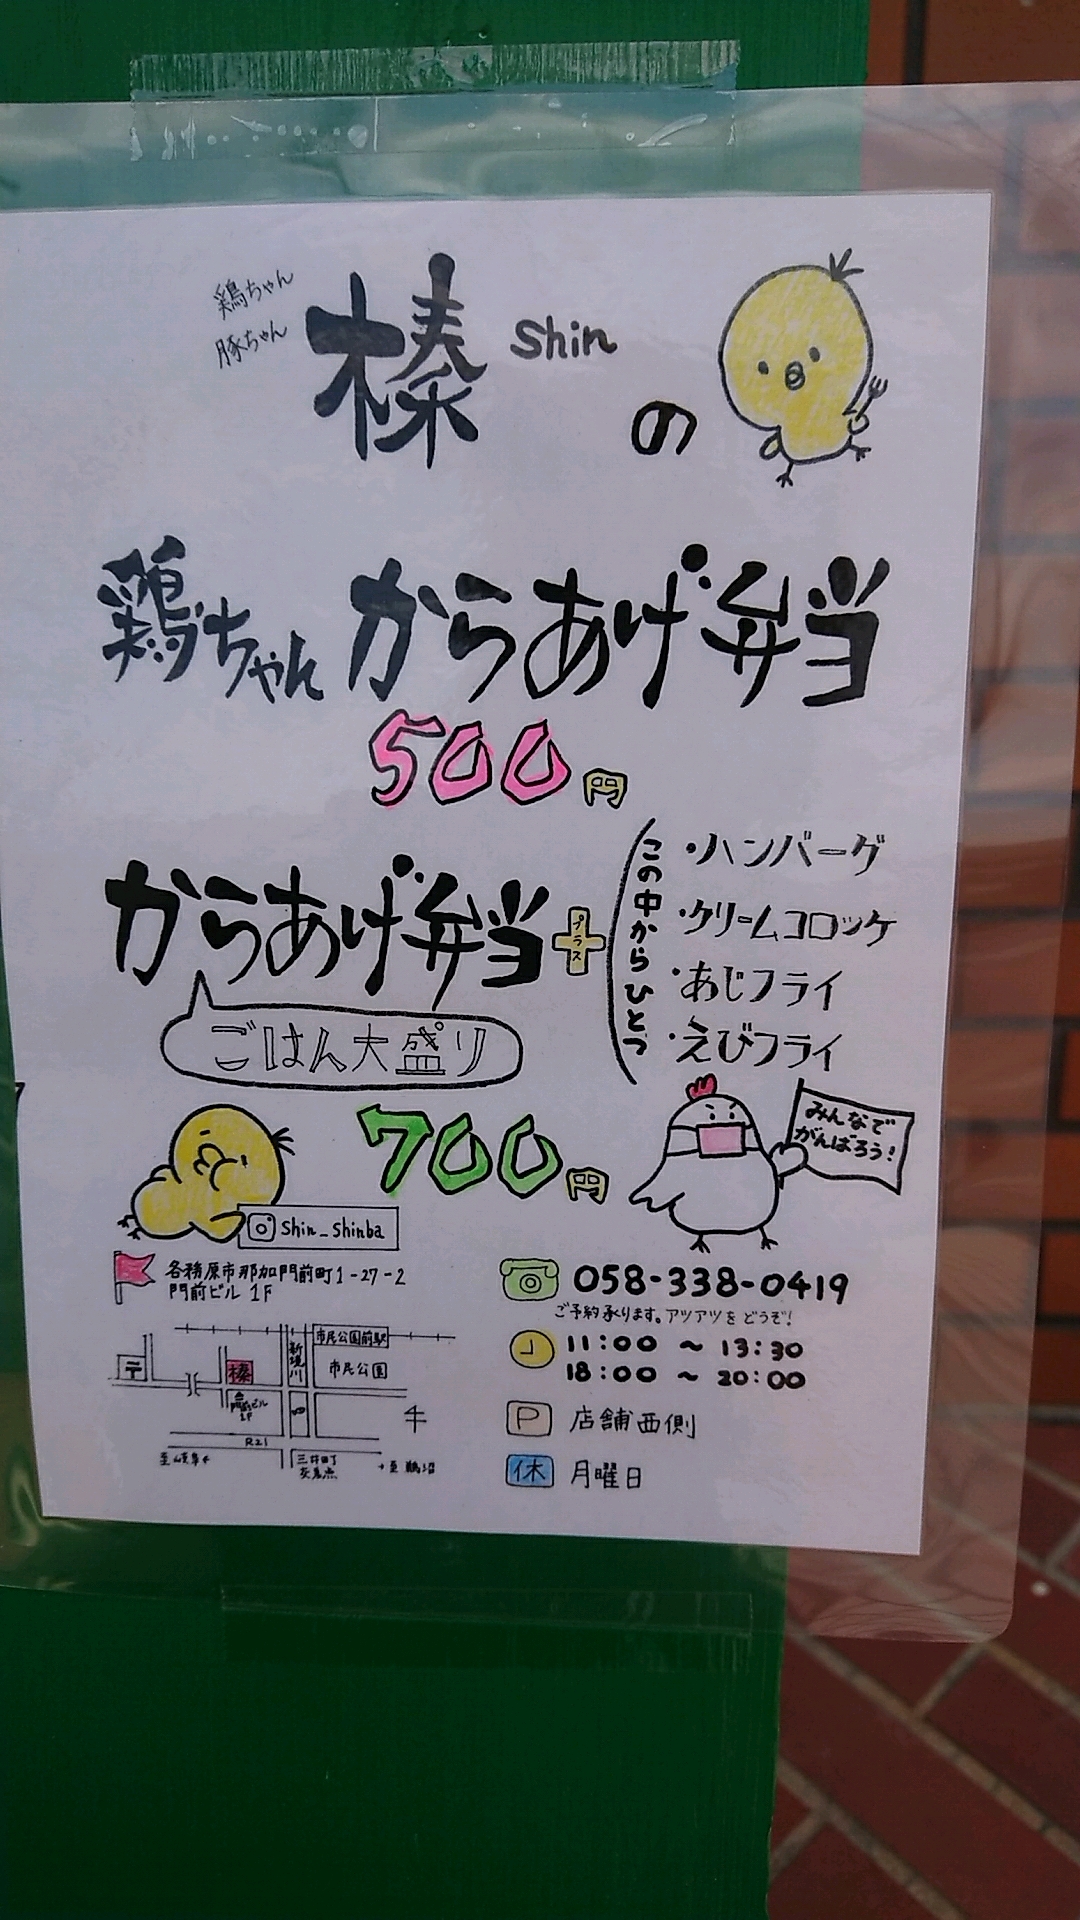 鶏ちゃん
豚ちゃん
榛 Shin の
鶏ちゃん からあげ弁当
500円
からあげ弁当
プラス
この中からひとつ
・ハンバーグ
・クリームコロッケ
・あじフライ
・えびフライ
ごはん大盛り
700円
みんなで
がんばろう!
Shin_shinba
各務原市那加門前町1-27-2
門前ビル 1F
058-338-0419
ご予約承ります。アツアツをどうぞ!
11:00 ~ 13:30
18:00 ~ 20:00
P 店舗西側
休 月曜日
市民公園前駅
新境川
市民公園
〒
榛
門前ビル
1F
R21
至岐阜
三井町
交差点
至 鵜沼